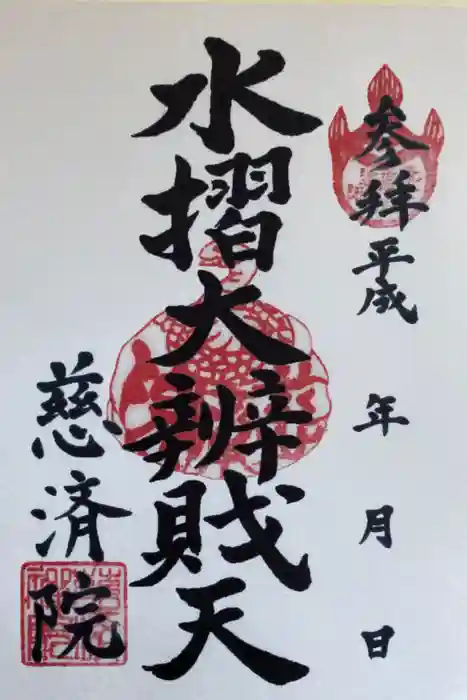 参拝 平成 年 月 日
水摺大辨賎天
慈済院